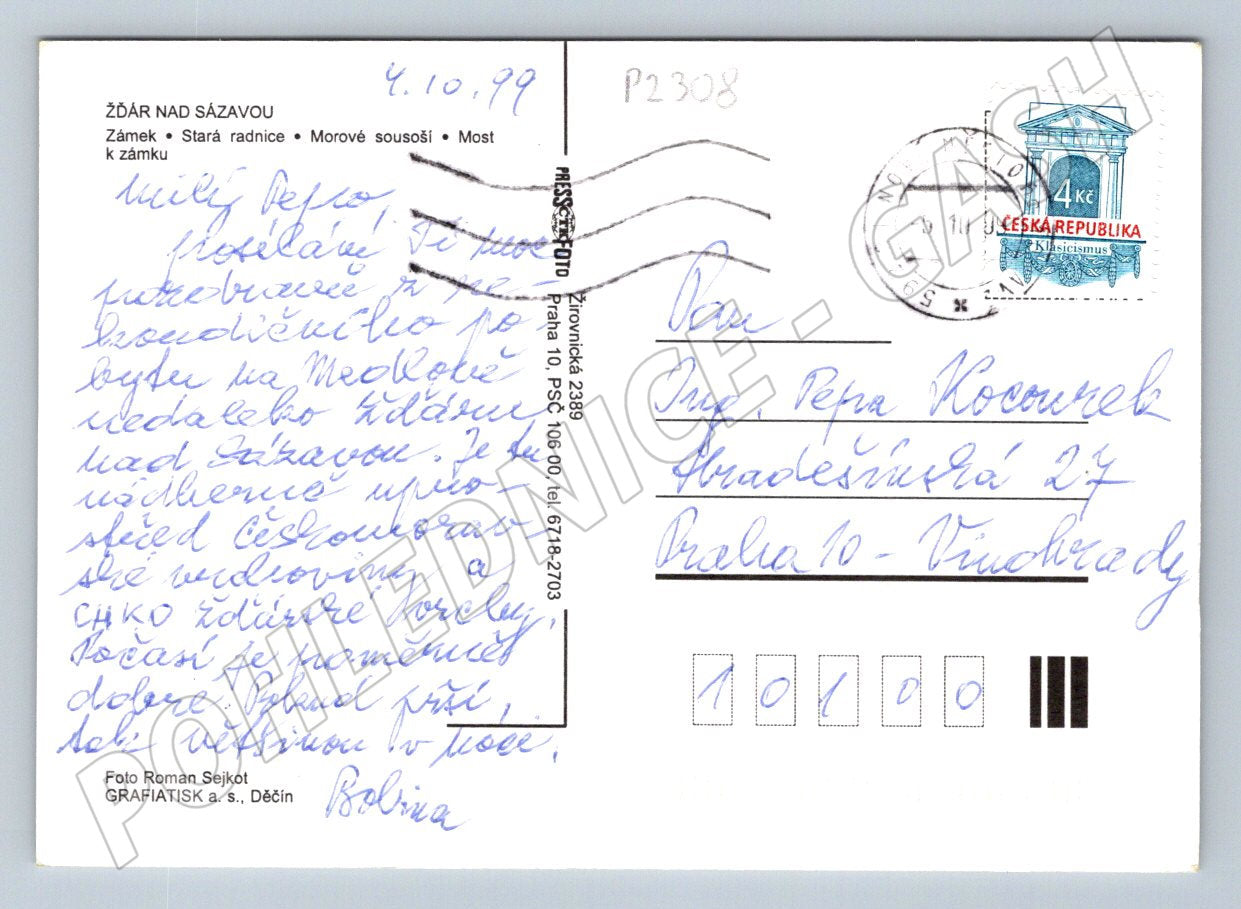 4.10.99
P2308
ŽĎÁR NAD SÁZAVOU
Zámek • Stará radnice • Morové sousoší • Most
k zámku
Milý Pepo,
posílám Ti moc
pozdravů z re-
kondičního po-
bytu na Medlově
nedaleko Žďáru
nad Sázavou. Je tu
nádherně upro-
střed Českomorav-
ské vrchoviny a
CHKO Žďárské vrchy.
Počasí je poměrně
dobré. Pokud prší,
tak většinou v noci.
Bobina
Foto Roman Sejkot
GRAFIATISK a. s., Děčín
PRESSFOTO
ČTK
Žirovnická 2389
Praha 10, PSČ 106 00, tel. 6718-2703
4 Kč
ČESKÁ REPUBLIKA
Klasicismus
Pan
Ing. Pepa Kocourek
Hradešínská 27
Praha 10 - Vinohrady
101 00
POHLEDNICE - GASH